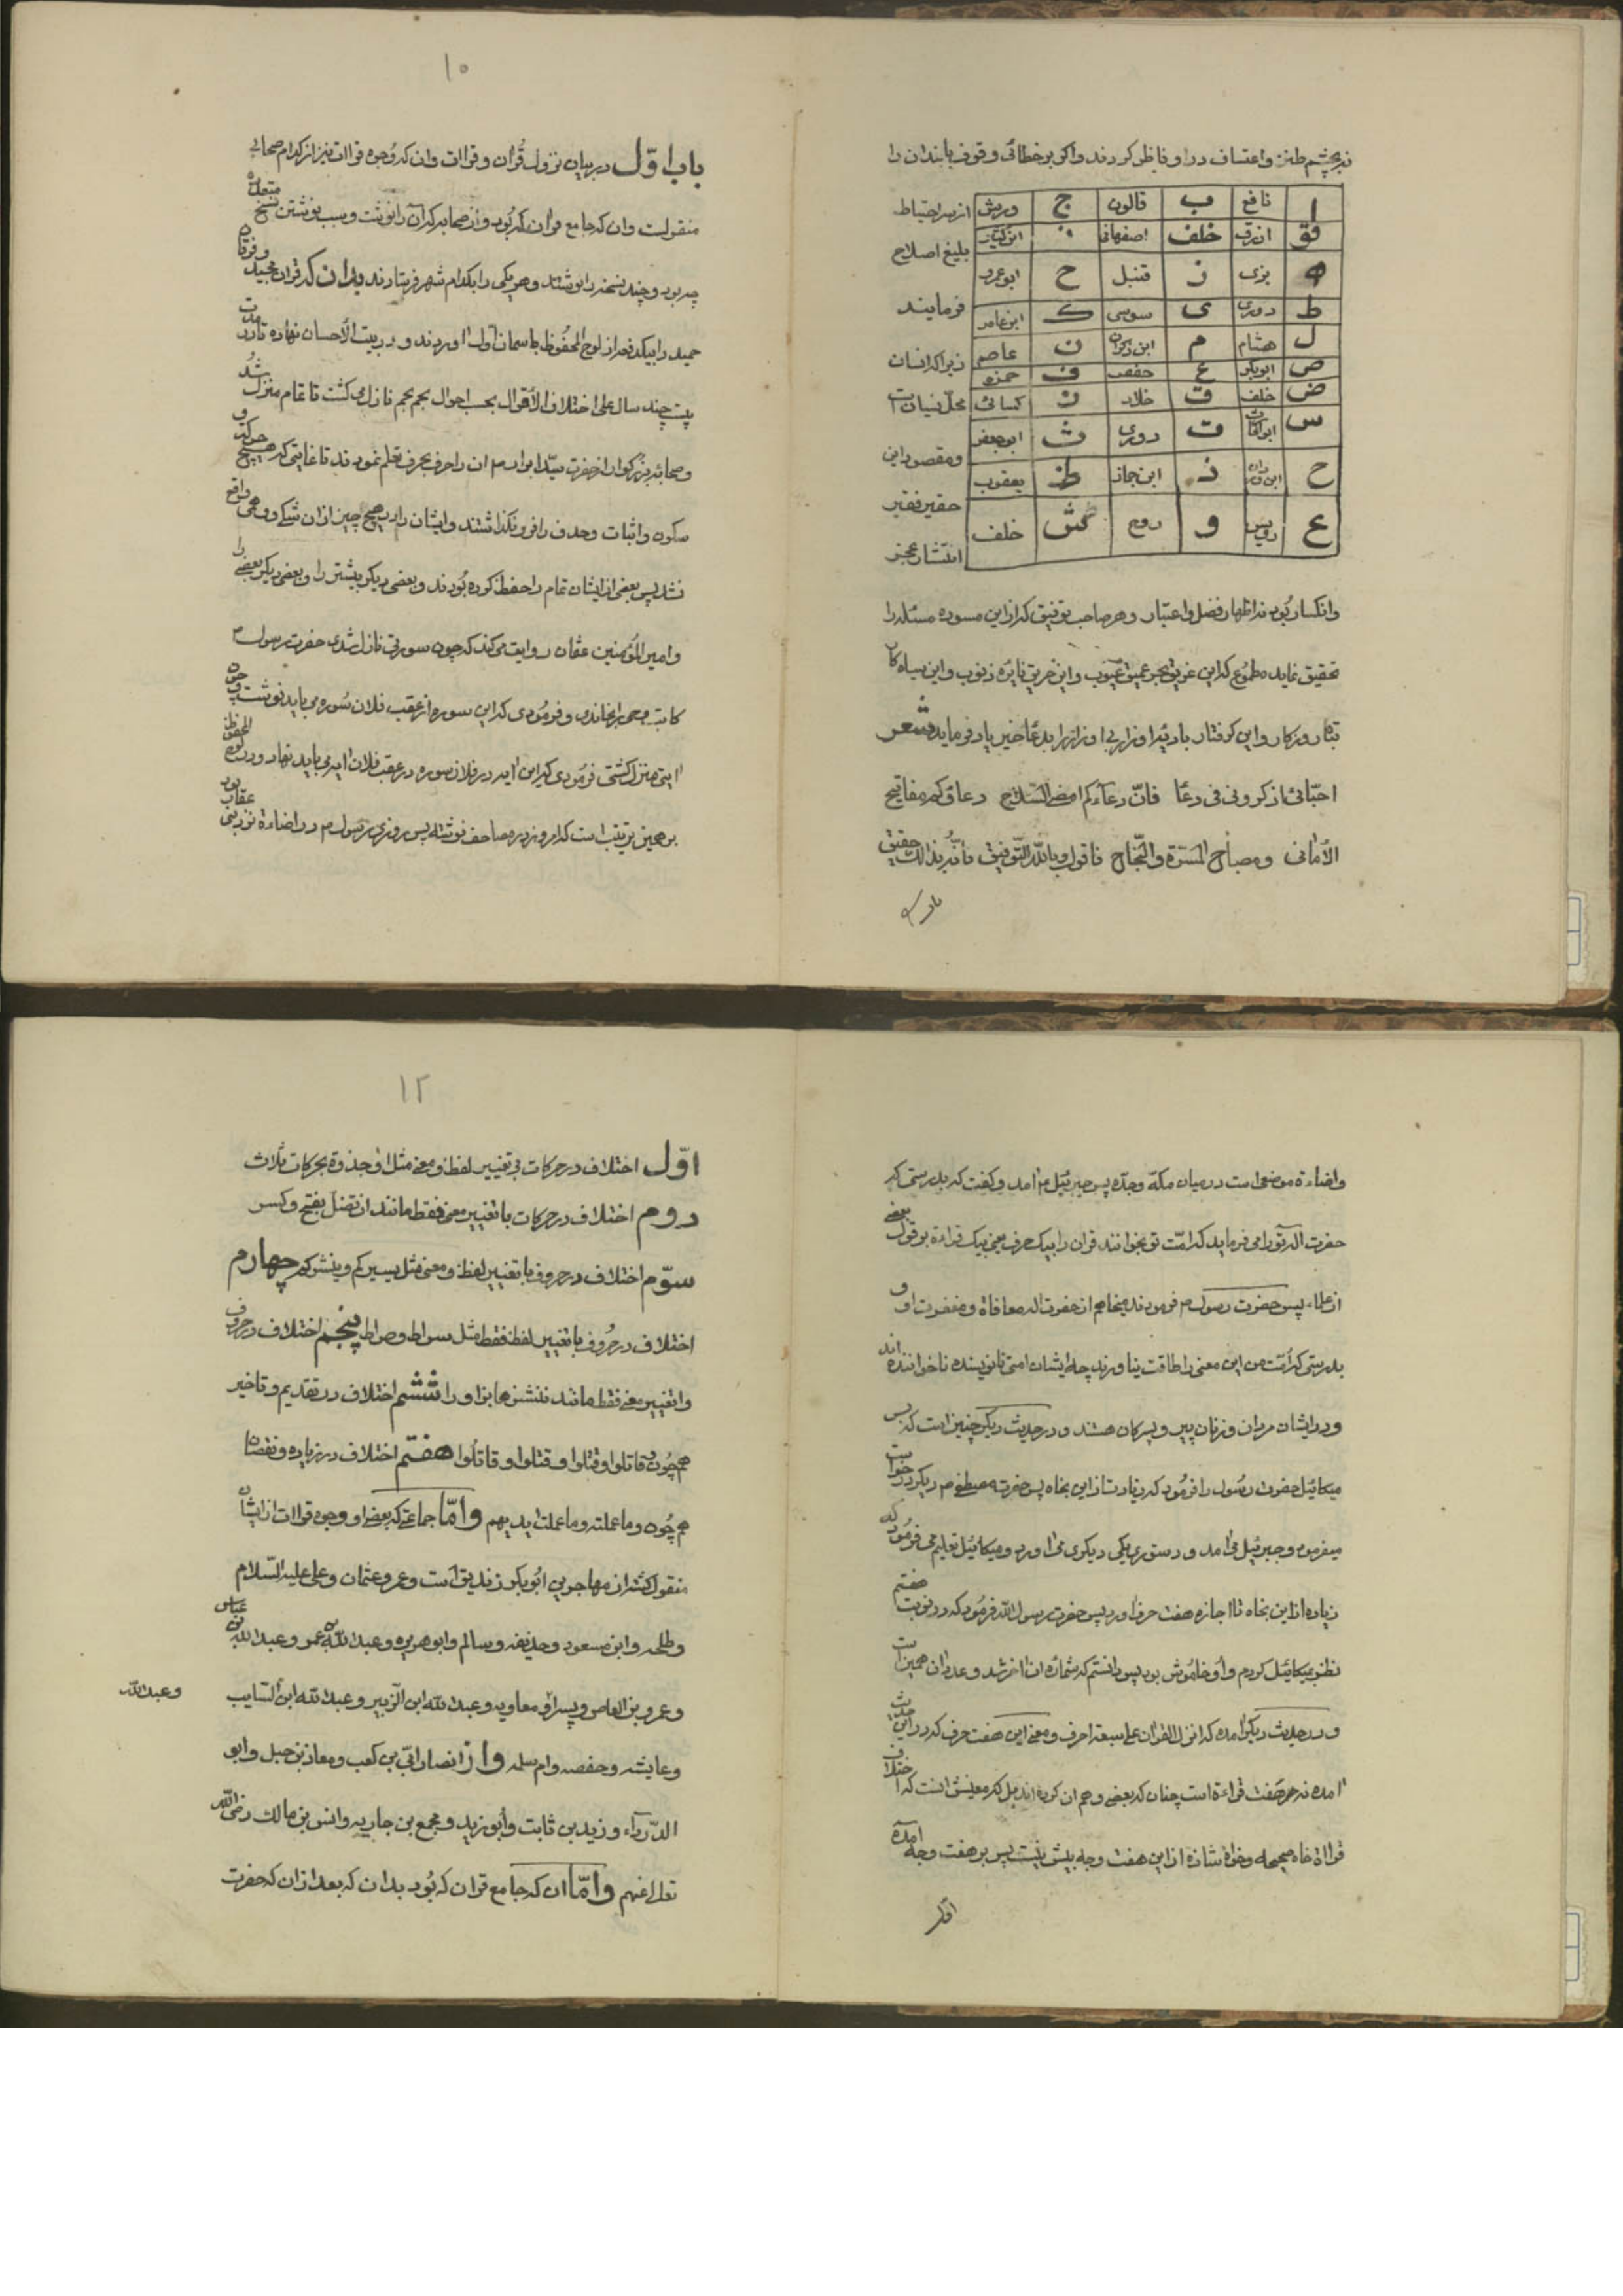 نه بچشم طنز و اعتساف در او ناظر کردند و اکر بر خطائی وقوف یابند ان را
ا نافع ب قالون ج ورش
فق ازرق خلف اصفهانی ابن کثیر
ه بزی ز قنبل ح ابوعمرو
ط دوری ی سوسی ک ابن عامر
ل هشام م ابن ذکوان ن عاصم
ص ابوبکر ع حفص ف حمزه
ض خلف ق خلاد ر کسائی
س ابوالحارث ت دوری ث ابوجعفر
ح ابن وردان ذ ابن جماز ظ یعقوب
ع رویس و روح خلف
از سر احتیاط
بلیغ اصلاح
فرمایند
زیرا که انسان
محل نسیان است
و مقصود این
حقیر فقیر
انتشار عجز
و انکسار بود نه اظهار فضل و اعتبار و هر صاحب توفیق که از این مسوده مسئله را
تحقیق نماید مطموع که این غریق بحر عمیق عیوب و این حریق نایره ذنوب و این سیاه کار
تباه روزکار و این کرفتار بادیه اوزار بی اوزار را بدعاء خیر یاد فرماید شعر
احبّائی اذکرونی فی دعا فانّ دعآءکم امضی السّلاح دعاؤکم مفاتیح
الأمانی ومصباح المسرّة والنّجاح فاقول وبالله التّوفیق فانّه بذالک حقیق
باب
۱۰
باب اوّل در بیان نزول قُران و قراات و ان که وُجوه قراات نیز از کدام صحابی
منقولست و ان که جامع قران که بُود و از صحابه که آن را نوشت و سبب نوشتن نسخ متعدده
چه بود و چند نسخه را نوشتند و هر یکی را بکدام شهر فرستادند بدان که قران مجید و فرقان
حمید را بیکدفعه از لوح المحفُوظ باسمان اوّل اوردند و در بیت الأحسان نهاده تا در مدت
بیست چند سال علی اختلاف الأقوال بحسب احوال نجم نجم نازل می کشت تا تمام منزل شُد
و صحابه بزرکوار از حضرت سیّد ابرار ص ان را حرف بحرف تعلم نمودند تا غایتی که هیچ حرکة و
سکون و اثبات و حذف را فرو نکذاشتند و ایشان را در هیچ چیز از ان شکی و وهمی واقع
نشد پس بعضی از ایشان تمام را حفظ کرده بُودند و بعضی دیکر بیشتر را و بعضی دیکر بعضی را
و امیر المُؤمنین عثمان روایت می کند که چون سورتی نازل شدی حضرت رسول ص
کاتب وحی را بخاندی و فرمُودی که این سوره از عقب فلان سُوره می باید نوشت و چون
ایتی منزل کشتی فرمُودی که این ایه در فلان سوره در عقب فلان ایه می باید نهاد و در لوح المحفوظ
بر همین ترتیب است که امروز در مصاحف نوشته پس روزی رسول ص در اضاءة نزدیکی عقاب بود
و اضاءة موضعی است در میان مکّه و جدّه پس جبرئیل ع امد و کفت که بدرستی که
حضرت اله تو را می فرماید که امّت تو بخوانند قران را بیک حرف یعنی بیک قراءة بر قول بعضی
از علماء پس حضرت رسول ص فرمودند میخاهم از حضرت اله معافاة و مغفرت او و
بدرستی که اُمّت من این معنی را طاقت نیاورند چه ایشان امتی نانویسنده ناخواننده اند
و در ایشان مردان و زنان پیر و پسرکان هستند و در حدیث دیکر چنین است که پس
میکائیل حضرت رسُول را فرمُود که زیادت از این بخاه پس حضرت مصطفی ص دیکر درخواست
میفرمود و جبرئیل می امد و دستوری یکی دیکری می اورد و میکائیل تعلیم می فرمُود که
زیاده از این بخاه تا اجازه هفت حرف اورد پس حضرت رسول الله فرمُود که در نوبت هفتم
نظر بمیکائیل کردم و او خامُوش بود پس دانستم که شماره ان اخر شد و عدد ان همین است
و در حدیث دیکر امده که انزل القران علی سبعة احرف و معنی این هفت حرف که در این حدیث
امده نه هر هفت قراءة است چنان که بعضی وهم ان کرده اند بل که معنیش انست که اختلاف
قراات خاه صحیحه و خواه شاذه از این هفت وجه بیش نیست پس بر هفت وجه امده
اوّل
۱۲
اوّل اختلاف در حرکات بی تغییر لفظ و معنی مثل او جذوة بحرکات ثلاث
دوم اختلاف در حرکات با تغییر معنی فقط مانند ان تضل بفتح و کسر
سوّم اختلاف در حروف با تغییر لفظ و معنی مثل یسیرکم و ینشرکم چهارم
اختلاف در حرُوف با تغییر لفظ فقط مثل سراط و صراط پنجم اختلاف در حروف
و اتغییر معنی فقط مانند ننشزها بزا و را ششم اختلاف در تقدیم و تاخیر
هم چُون قاتلوا و قتلوا و قتلوا و قاتلُوا هفتم اختلاف در زیاده و نقصان
هم چُون و ما عملته و ما عملت ایدیهم وامّا جماعتی که بعضی او وجوه قراات از ایشان
منقول کشته از مهاجرین ابُوبکر زندیق است و عمر و عثمان و علی علیه السّلام
و طلحه و ابن مسعود و حذیفه و سالم و ابو هریره و عبد الله بن عمر و عبد الله بن عباس
و عمرو بن العاص و پسر او معاویه و عبد الله ابن الزّبیر و عبد الله ابن السّایب و عبد الله
و عایشه و حفصه و ام سلمه و از انصار ابیّ بن کعب و معاذ بن جبل و ابو
الدّرداء و زید بن ثابت و أبو زید و مجمع بن جاریه و انس بن مالک رضی الله
تعالی عنهم وامّا ان که جامع قران که بُود بدان که بعد از ان که حضرت